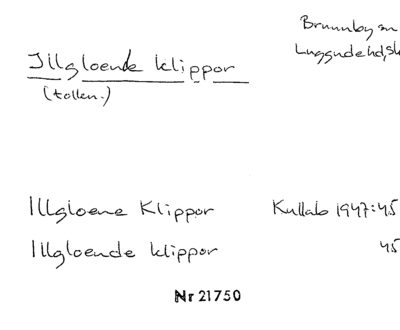 Brunnby sn
Luggude hd, sk
Illgloende klippor
(tolkn.)
Illgloene Klippor Kullab 1947:45
Illgloende klippor 45
Nr 21750